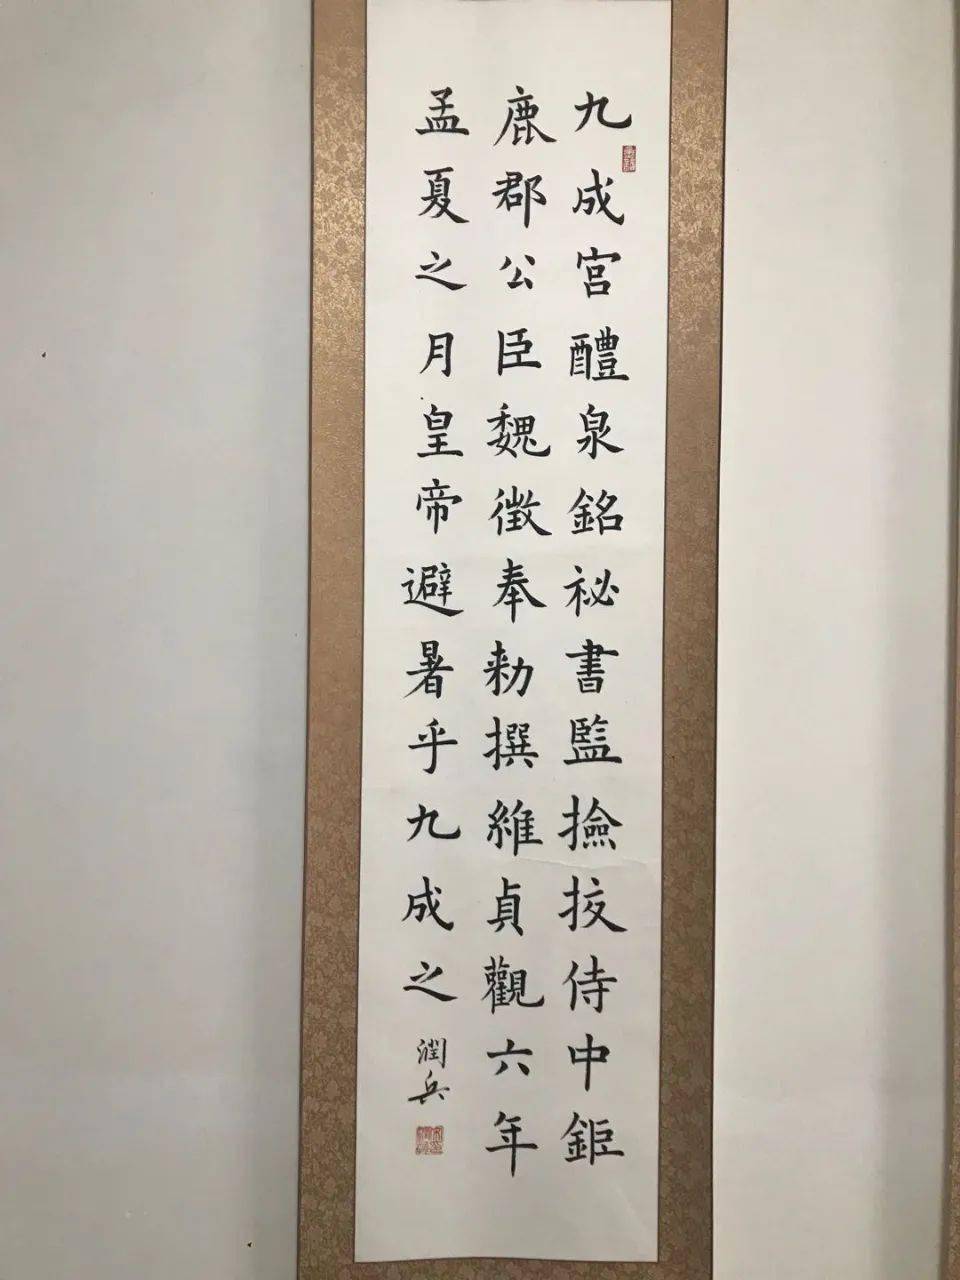 九成宮醴泉銘祕書監撿挍侍中鉅
鹿郡公臣魏徵奉勑撰維貞觀六年
孟夏之月皇帝避暑乎九成之
潤兵